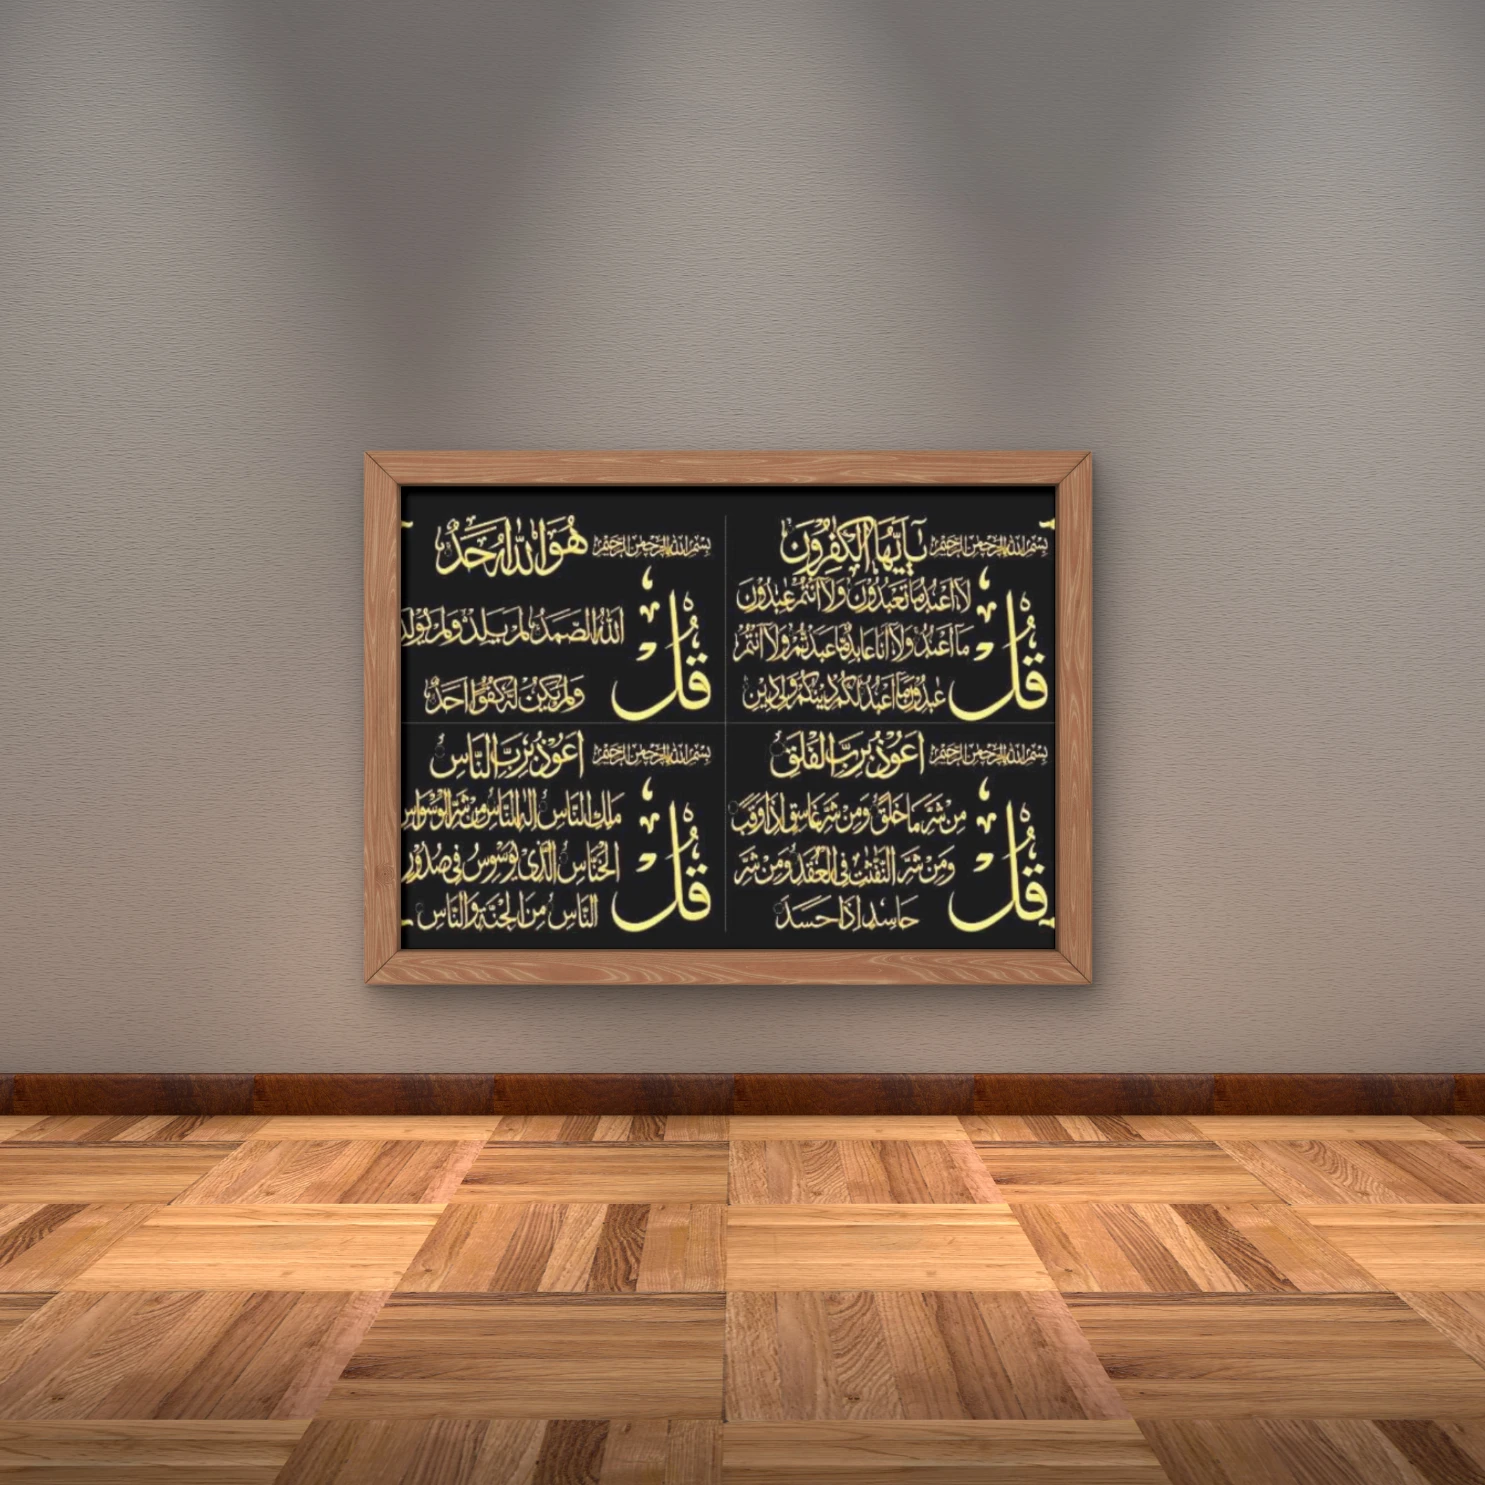 بِسْمِ اللهِ الرَّحْمٰنِ الرَّحِيْمِ
قُلْ
يٰٓاَيُّهَا الْكٰفِرُوْنَ
لَآ اَعْبُدُ مَا تَعْبُدُوْنَ وَلَآ اَنْتُمْ عٰبِدُوْنَ
مَآ اَعْبُدُ وَلَآ اَنَا عَابِدٌ مَّا عَبَدْتُّمْ وَلَآ اَنْتُمْ
عٰبِدُوْنَ مَآ اَعْبُدُ لَكُمْ دِيْنُكُمْ وَلِيَ دِيْنِ
بِسْمِ اللهِ الرَّحْمٰنِ الرَّحِيْمِ
قُلْ
هُوَ اللهُ اَحَدٌ
اَللهُ الصَّمَدُ لَمْ يَلِدْ وَلَمْ يُوْلَدْ
وَلَمْ يَكُنْ لَّهٗ كُفُوًا اَحَدٌ
بِسْمِ اللهِ الرَّحْمٰنِ الرَّحِيْمِ
قُلْ
اَعُوْذُ بِرَبِّ الْفَلَقِ
مِنْ شَرِّ مَا خَلَقَ وَمِنْ شَرِّ غَاسِقٍ اِذَا وَقَبَ
وَمِنْ شَرِّ النَّفّٰثٰتِ فِي الْعُقَدِ وَمِنْ شَرِّ
حَاسِدٍ اِذَا حَسَدَ
بِسْمِ اللهِ الرَّحْمٰنِ الرَّحِيْمِ
قُلْ
اَعُوْذُ بِرَبِّ النَّاسِ
مَلِكِ النَّاسِ اِلٰهِ النَّاسِ مِنْ شَرِّ الْوَسْوَاسِ
الْخَنَّاسِ الَّذِيْ يُوَسْوِسُ فِيْ صُدُوْرِ
النَّاسِ مِنَ الْجِنَّةِ وَالنَّاسِ